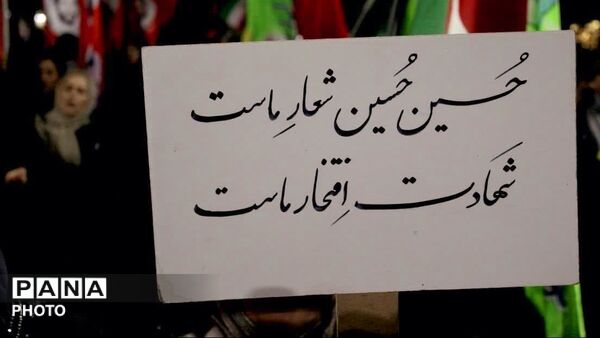 حُسین حُسین شعارِ ماست
شَهادت اِفتخار ماست
PANA
PHOTO